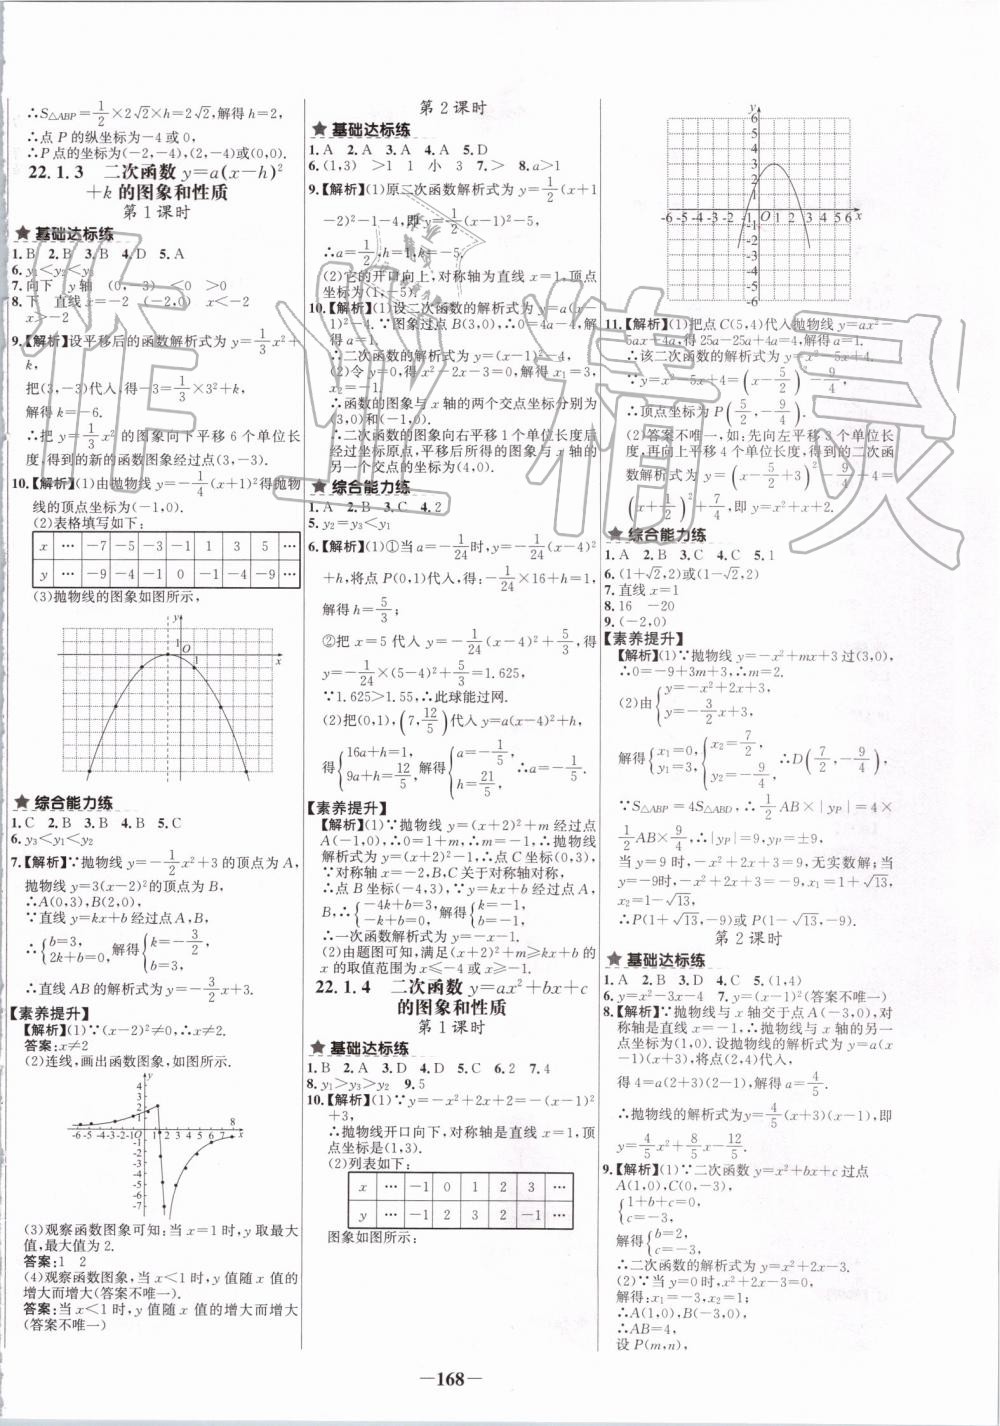 ∴S△ABP=1/2×2√2×h=2√2,解得h=2,
∴点P的纵坐标为-4或0,
∴P点的坐标为(-2,-4),(2,-4)或(0,0).
22.1.3 二次函数y=a(x-h)²
+k的图象和性质
第1课时
★基础达标练
1.B 2.B 3.B 4.D 5.A
6.y₁<y₂<y₃
7.向下 y轴 (0,-3) <0 >0
8.下 直线x=-2 (-2,0) x<-2
x>-2
9.【解析】设平移后的函数解析式为y=-1/3x²+
k,
把(3,-3)代入,得-3=-1/3×3²+k,
解得k=-6.
∴把y=-1/3x²的图象向下平移6个单位长
度,得到的新的函数图象经过点(3,-3).
10.【解析】(1)由抛物线y=-1/4(x+1)²得抛物
线的顶点坐标为(-1,0).
(2)表格填写如下:
x … -7 -5 -3 -1 1 3 5 …
y … -9 -4 -1 0 -1 -4 -9 …
(3)抛物线的图象如图所示,
y
1
O 1 x
★综合能力练
1.C 2.B 3.B 4.B 5.C
6.y₃<y₁<y₂
7.【解析】∵抛物线y=-1/2x²+3的顶点为A,
抛物线y=3(x-2)²的顶点为B,
∴A(0,3),B(2,0),
∵直线y=kx+b经过点A,B,
∴{b=3, 2k+b=0,解得{k=-3/2, b=3,
∴直线AB的解析式为y=-3/2x+3.
【素养提升】
【解析】(1)∵(x-2)²≠0,∴x≠2.
答案:x≠2
(2)连线,画出函数图象,如图所示.
y
4
3
2
1
-6 -5 -4 -3 -2 -1 O 1 2 3 4 5 6 7 8 x
-1
-2
-3
-4
-5
-6
-7
(3)观察函数图象可知:当x=1时,y取最大
值,最大值为2.
答案:1 2
(4)观察函数图象,当x<1时,y值随x值的
增大而增大(答案不唯一).
答案:当x<1时,y值随x值的增大而增大
(答案不唯一)
第2课时
★基础达标练
1.A 2.A 3.A 4.A 5.D
6.(1,3) >1 1 小 3 7.> 8.a>1
9.【解析】(1)原二次函数解析式为y=1/2(x+1
-2)²-1-4,即y=1/2(x-1)²-5,
∴a=1/2,h=1,k=-5.
(2)它的开口向上,对称轴为直线x=1,顶点
坐标为(1,-5).
10.【解析】(1)设二次函数的解析式为y=a(x-
1)²-4.∵图象过点B(3,0),∴0=4a-4,解
得a=1.
∴二次函数的解析式为y=(x-1)²-4,
(2)令y=0,得x²-2x-3=0,解得x₁=3,
x₂=-1.
∴函数的图象与x轴的两个交点坐标分别为
(3,0)和(-1,0).
∴二次函数的图象向右平移1个单位长度后
经过坐标原点,平移后所得的图象与x轴的
另一个交点的坐标为(4,0).
★综合能力练
1.A 2.B 3.C 4.2
5.y₂=y₃<y₁
6.【解析】(1)①当a=-1/24时,y=-1/24(x-4)²
+h,将点P(0,1)代入,得:-1/24×16+h=1,
解得h=5/3;
②把x=5代入y=-1/24(x-4)²+5/3,得
y=-1/24×(5-4)²+5/3=1.625,
∵1.625>1.55,∴此球能过网.
(2)把(0,1),(7,12/5)代入y=a(x-4)²+h,
得{16a+h=1, 9a+h=12/5,解得{a=-1/5, h=21/5,∴a=-1/5.
【素养提升】
【解析】(1)∵抛物线y=(x+2)²+m经过点
A(-1,0),∴0=1+m,∴m=-1,∴抛物线
解析式为y=(x+2)²-1,∴点C坐标(0,3),
∵对称轴为x=-2,B,C关于对称轴对称,
∴点B坐标(-4,3),∵y=kx+b经过点A,
B,∴{-4k+b=3, -k+b=0,解得{k=-1, b=-1,
∴一次函数解析式为y=-x-1.
(2)由题图可知,满足(x+2)²+m≥kx+b的
x的取值范围为x≤-4或x≥-1.
22.1.4 二次函数y=ax²+bx+c
的图象和性质
第1课时
★基础达标练
1.B 2.A 3.D 4.D 5.C 6.2 7.4
8.y₁>y₃>y₂ 9.5
10.【解析】(1)∵y=-x²+2x+2=-(x-1)²
+3,
∴抛物线开口向下,对称轴是直线x=1,顶
点坐标是(1,3).
(2)列表如下:
x … -1 0 1 2 3 …
y … -1 2 3 2 -1 …
图象如图所示:
y
6
5
4
3
2
1
-6 -5 -4 -3 -2 -1 O 1 2 3 4 5 6 x
-1
-2
-3
-4
-5
-6
11.【解析】(1)把点C(5,4)代入抛物线y=ax²-
5ax+4a,得25a-25a+4a=4,解得a=1.
∴该二次函数的解析式为y=x²-5x+4.
∵y=x²-5x+4=(x-5/2)²-9/4,
∴顶点坐标为P(5/2,-9/4).
(2)答案不唯一,如:先向左平移3个单位长
度,再向上平移4个单位长度,得到的二次函
数解析式为y=(x-5/2+3)²-9/4+4=
(x+1/2)²+7/4,即y=x²+x+2.
★综合能力练
1.A 2.B 3.C 4.C 5.1
6.(1+√2,2)或(1-√2,2)
7.直线x=1
8.16 -20
9.(-2,0)
【素养提升】
【解析】(1)∵抛物线y=-x²+mx+3过(3,0),
∴0=-9+3m+3,∴m=2.
(2)由{y=-x²+2x+3, y=-3/2x+3,
解得{x₁=0, y₁=3,{x₂=7/2, y₂=-9/4,∴D(7/2,-9/4),
∵S△ABP=4S△ABD,∴1/2AB×|yP|=4×
1/2AB×9/4,∴|yP|=9,yP=±9,
当y=9时,-x²+2x+3=9,无实数解;当
y=-9时,-x²+2x+3=-9,x₁=1+√13,
x₂=1-√13,
∴P(1+√13,-9)或P(1-√13,-9).
第2课时
★基础达标练
1.A 2.B 3.D 4.C 5.(1,4)
6.y=x²-3x-4 7.y=(x-1)²(答案不唯一)
8.【解析】∵抛物线与x轴交于点A(-3,0),对
称轴为直线x=-1,∴抛物线与x轴的另一
点坐标为(1,0).设抛物线的解析式为y=a(x
-1)(x+3),将点(2,4)代入,
得4=a(2+3)(2-1),解得a=4/5.
∴抛物线的解析式为y=4/5(x+3)(x-1),即
y=4/5x²+8/5x-12/5.
9.【解析】(1)∵二次函数y=x²+bx+c过点
A(1,0),C(0,-3),
{1+b+c=0, c=-3,
解得{b=2, c=-3,
∴二次函数的解析式为y=x²+2x-3.
(2)∵当y=0时,x²+2x-3=0,
解得:x₁=-3,x₂=1;
∴A(1,0),B(-3,0),
∴AB=4,
设P(m,n),
—168—
作业精灵